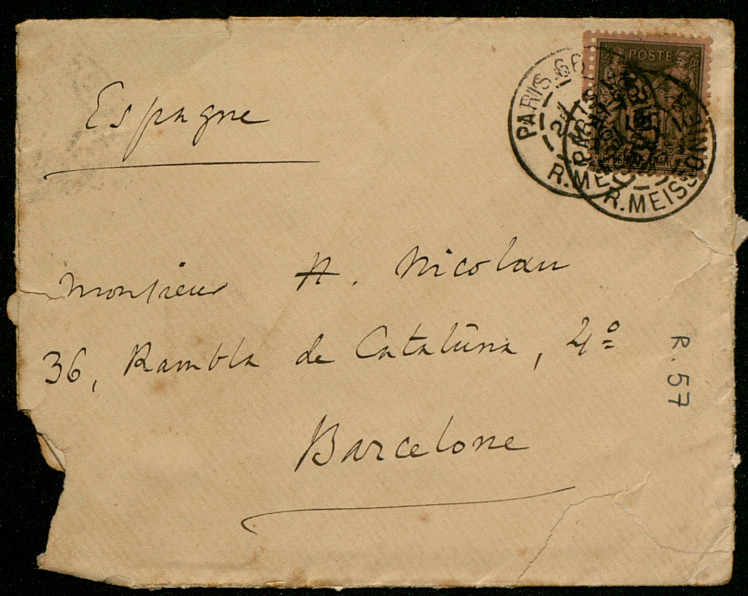 Espagne
POSTES
PARIS
R. MEISSONIER
Monsieur A. Nicolau
36, Rambla de Cataluna, 4º
Barcelone
R. 57